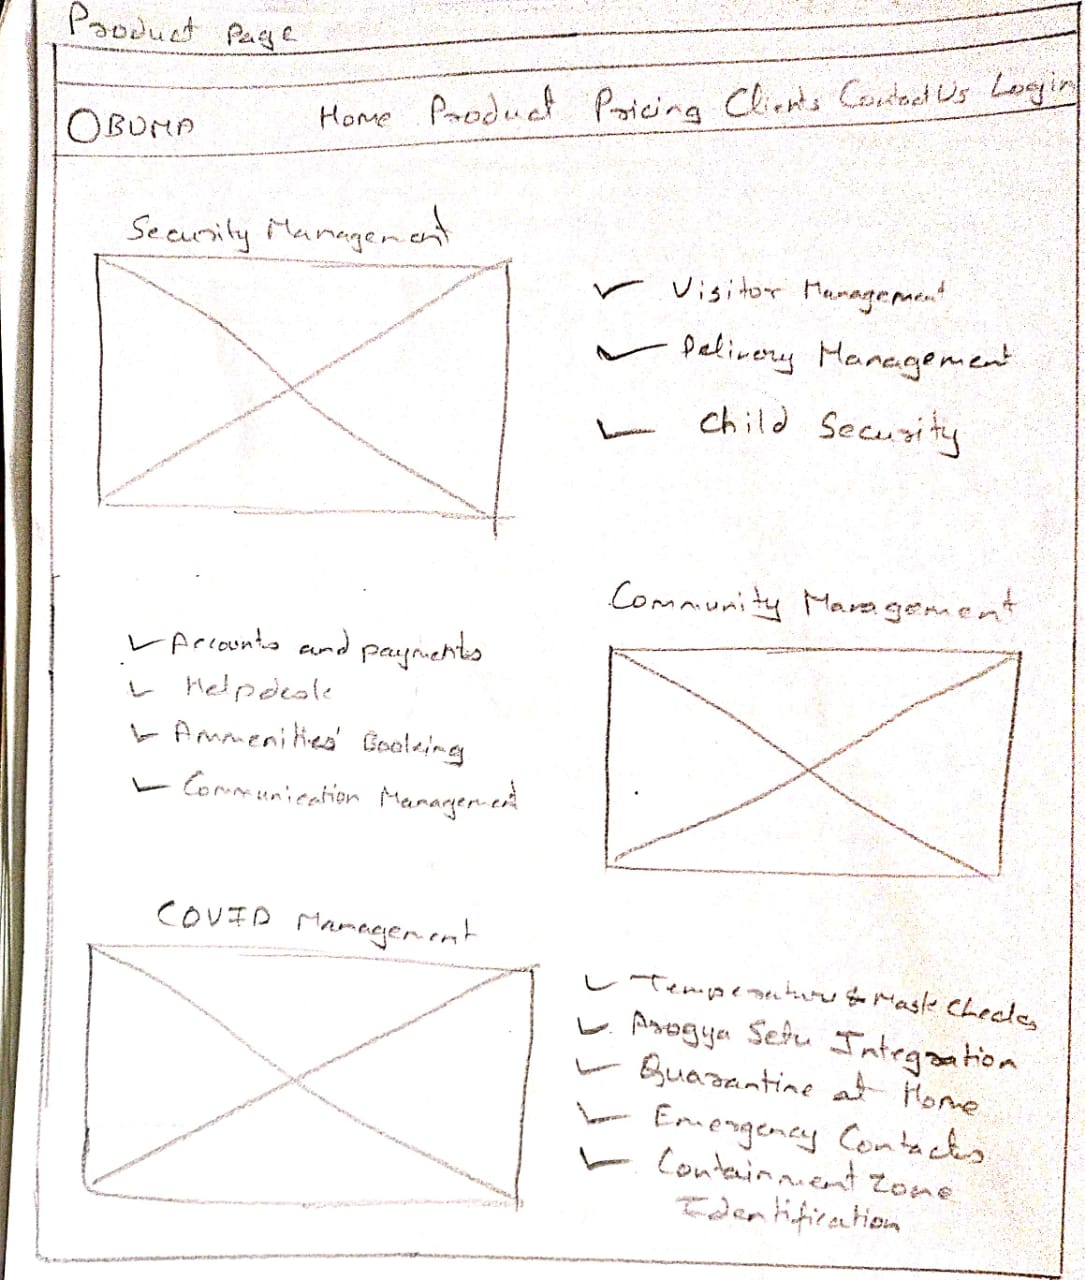 Product Page
OBUMA Home Product Pricing Clients Contact Us Login
Security Management
Visitor Management
Delivery Management
Child Security
Community Management
Accounts and payments
Helpdesk
Ammenities' Booking
Communication Management
COVID Management
Temperature & Mask Checks
Arogya Setu Integration
Quarantine at Home
Emergency Contacts
Containment Zone
Identification